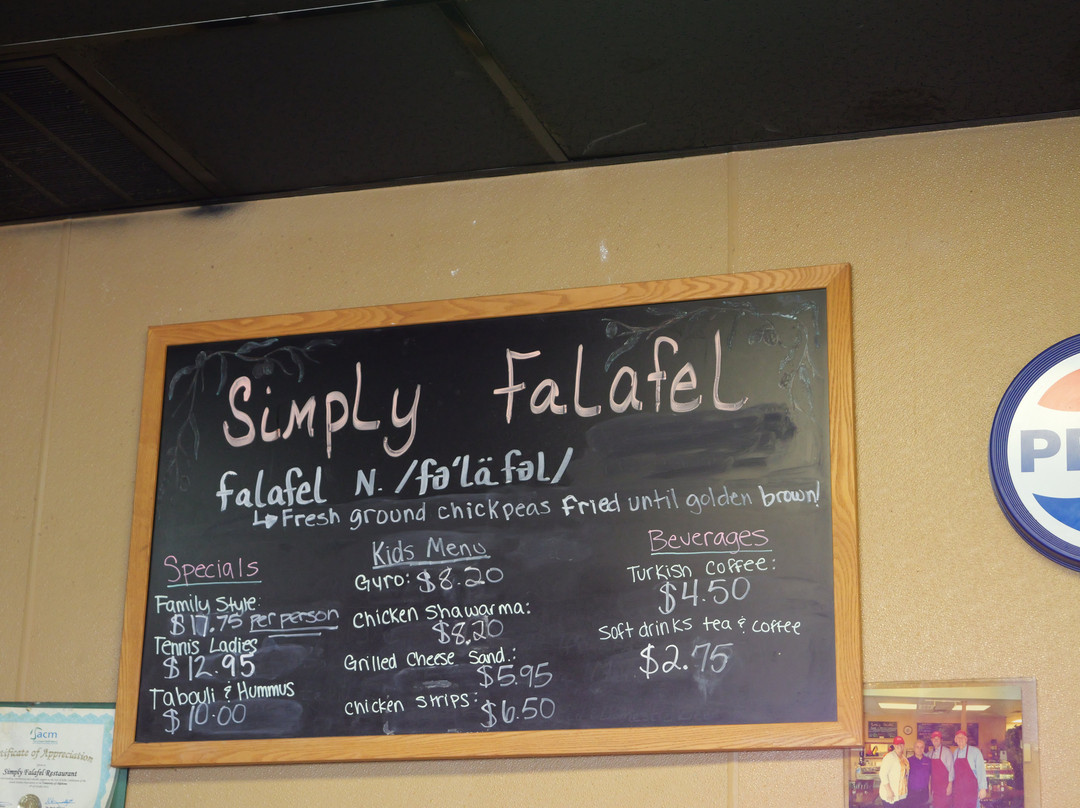 Simply Falafel
falafel N. /fə'läfəl/
↳Fresh ground chickpeas fried until golden brown!
Specials
Family Style:
$17.75 per person
Tennis Ladies
$12.95
Tabouli & Hummus
$10.00
Kids Menu
Gyro: $8.20
Chicken Shawarma:
$8.20
Grilled Cheese Sand.:
$5.95
chicken strips:
$6.50
Beverages
Turkish Coffee:
$4.50
Soft drinks tea & coffee
$2.75
acm
Certificate of Appreciation
Simply Falafel Restaurant